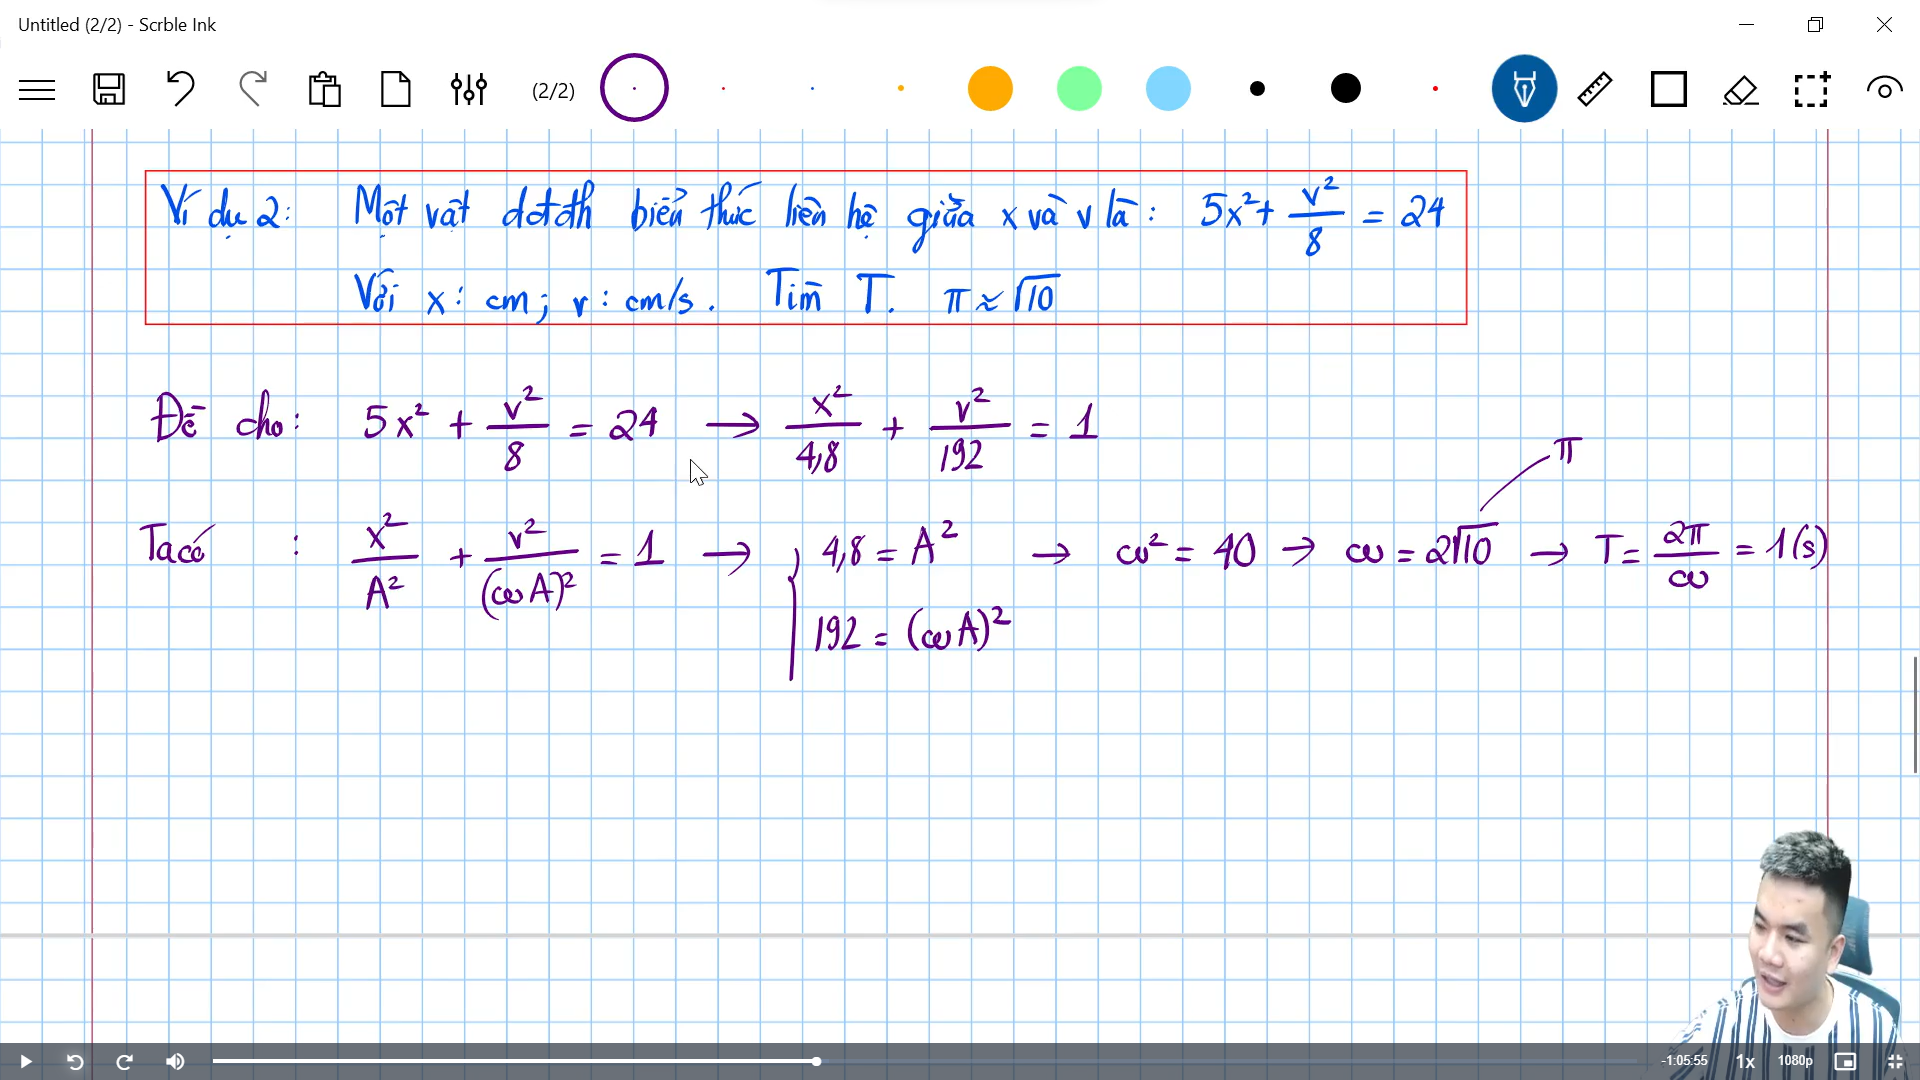 Untitled (2/2) - Scrble Ink
(2/2)
Ví dụ 2: Một vật dđđh biểu thức liên hệ giữa x và v là: 5x² + v²/8 = 24
Với x: cm; v: cm/s. Tìm T. π ≈ √10
Đề cho: 5x² + v²/8 = 24 → x²/4,8 + v²/192 = 1
π
Ta có : x²/A² + v²/(ωA)² = 1 → { 4,8 = A² → ω² = 40 → ω = 2√10 → T = 2π/ω = 1(s)
192 = (ωA)²
-1:05:55 1x 1080p